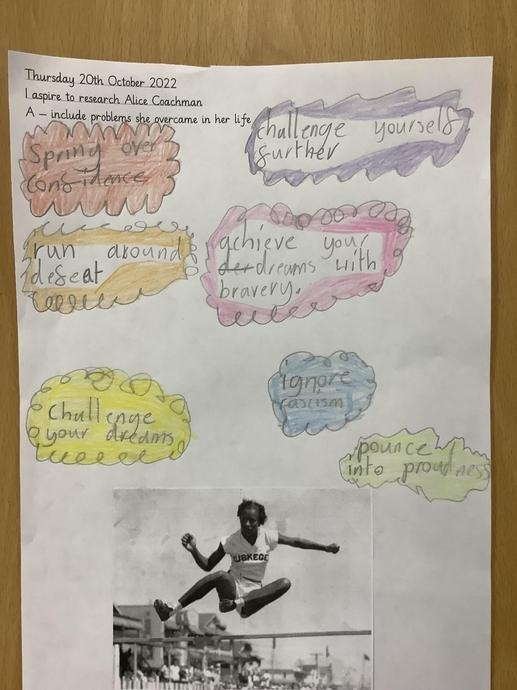 Thursday 20th October 2022
I aspire to research Alice Coachman
A – include problems she overcame in her life
Spring over
confidence
challenge yourself
further
run around
defeat
achieve your
der dreams with
bravery.
Challenge
your dreams
ignore
rascism
pounce
into proudness
USKEGE